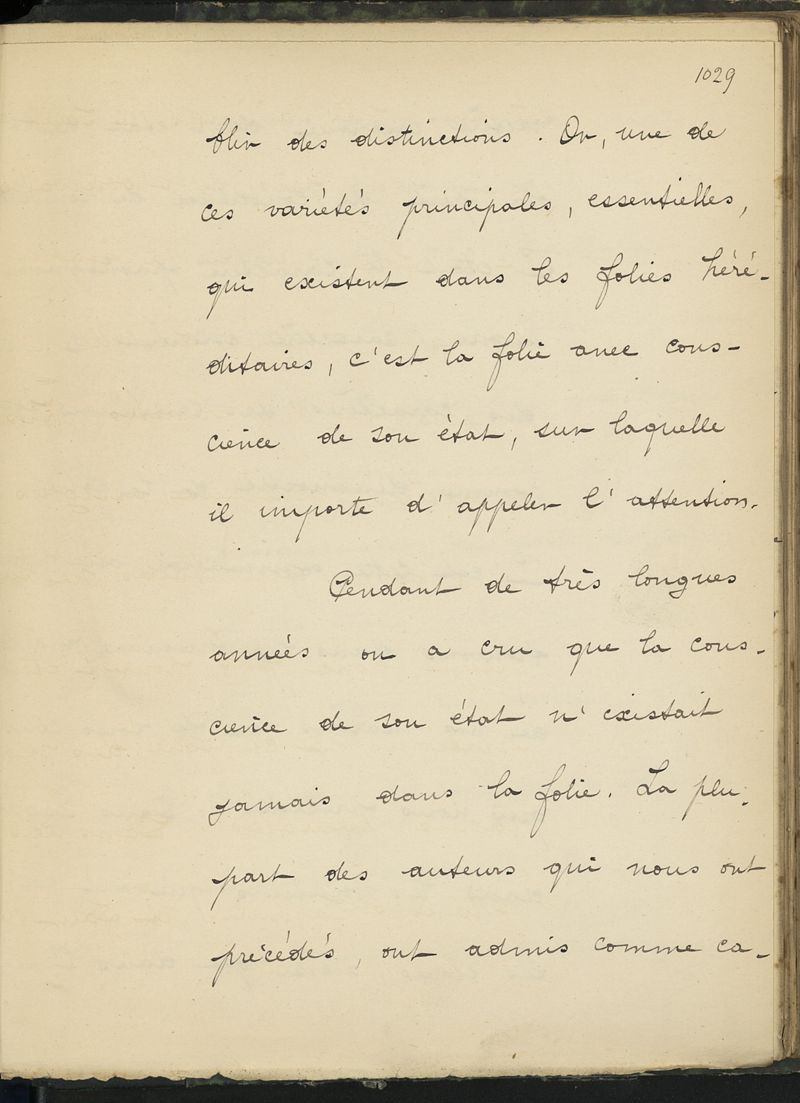 1029
blir des distinctions. Or, une de
ces variétés principales, essentielles,
qui existent dans les folies héré-
ditaires, c'est la folie avec cons-
cience de son état, sur laquelle
il importe d'appeler l'attention.
Pendant de très longues
années on a cru que la cons-
cience de son état n'existait
jamais dans la folie. La plu-
part des auteurs qui nous ont
précédés, ont admis comme ca-